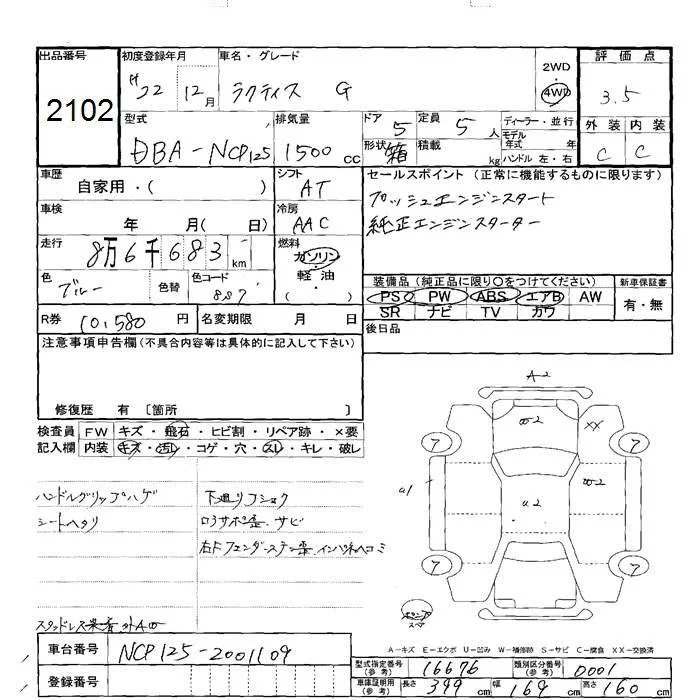 出品番号 初度登録年月 車名・グレード 2WD 評価点
2102 H22 12月 ラクティス G 4WD 3.5
型式 排気量 ドア 定員 ディーラー・並行 外装 内装
DBA-NCP125 1500cc 5 5人 モデル年式 年 C C
形状 箱 積載 kg ハンドル 左・右
車歴 シフト セールスポイント (正常に機能するものに限ります)
自家用・( ) AT プッシュエンジンスタート
車検 冷房 純正エンジンスターター
年 月( 日) AAC
走行 燃料
8万6千683km ガソリン・
色 色替 色コード 軽油・ 装備品 (純正品に限り○をつけてください) 新車保証書
ブルー 8S7 ( ) PS PW ABS エアB AW 有・無
SR ナビ TV カワ
R券 10,580円 名変期限 月 日 後日品
注意事項申告欄 (不具合内容等は具体的に記入して下さい)
修復歴 有 [箇所 ]
検査員 FW キズ・飛石・ヒビ割・リペア跡・×要
記入欄 内装 キズ・汚レ・コゲ・穴・スレ・キレ・破レ
ハンドルグリップハゲ 下廻りコショク
シートヘタリ ロアサポ歪.サビ
右Fフェンダーステー歪.インパネヘコミ
A-2
2
XX
7 7
a1 a2 2
7 7
スタッドレス
スペア
A-キズ E-エクボ U-凹み W-補修跡 S-サビ C-腐食 XX-交換済
車台番号 NCP125-2001109
型式指定番号 (参考) 16676 類別区分番号 (参考) 0001
登録番号
車庫証明用 (参考) 長さ 399cm 幅 169cm 高さ 160cm